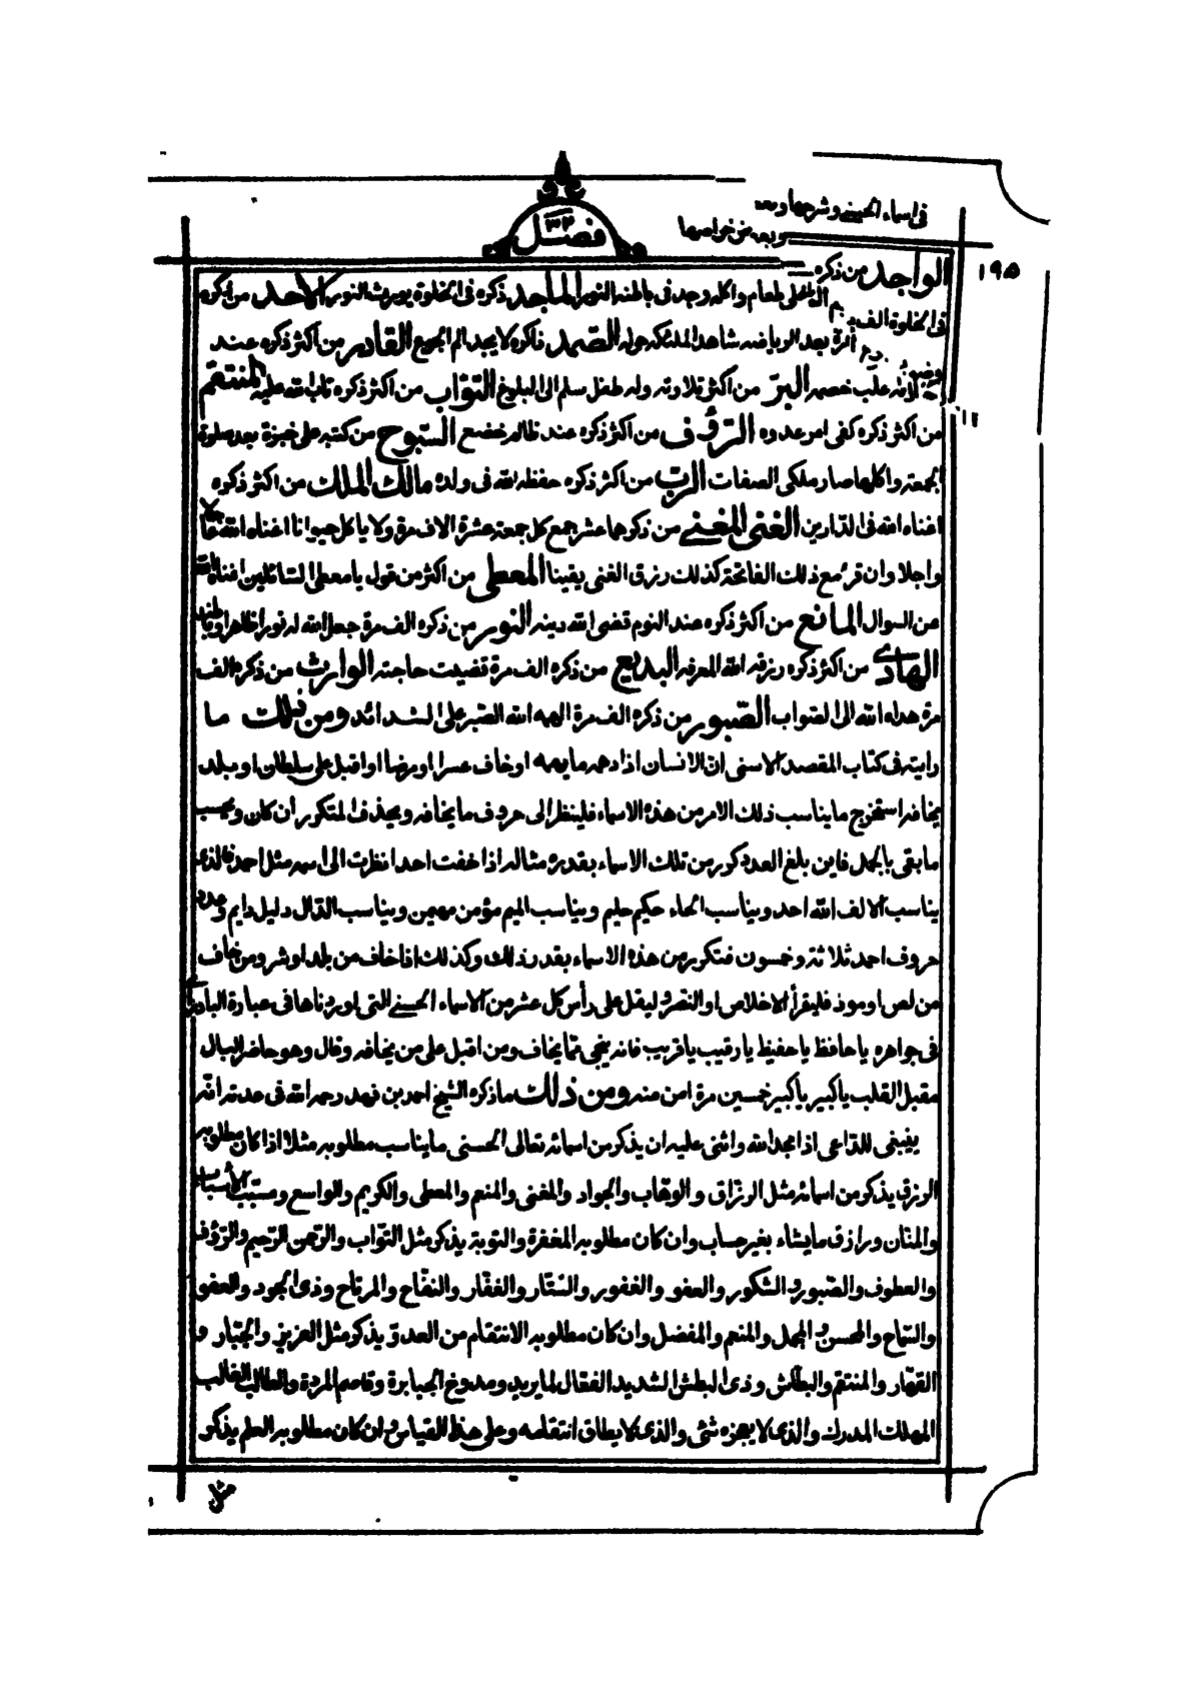 في اسماء الحسنى وشرحها وبعد
وبعد من خواصها
فصل ٣٢
١٩٥
الواجد من ذكره
على طعام واكله وجد في باطنه النور الماجد ذكره في الخلوة يورث النور الاحد من ذكره
في الخلوة الف
مرة بعد الرياضه شاهد الملئكه حوله الصمد ذاكره لا يجد الم الجوع القادر من اكثر ذكره عند
وضوئه غلب خصمه البرّ من اكثر تلاوته وله طفل سلم الى البلوغ التوّاب من اكثر ذكره تاب الله عليه المنتقم
من اكثر ذكره كفى امر عدوه الرؤف من اكثر ذكره عند ظالم خضع السّبوح من كتبه على خبزة بعد صلوة
الجمعة واكلها صار ملكى الصفات الربّ من اكثر ذكره حفظه الله في ولده مالك الملك من اكثر ذكره
اغناه الله في الدّارين الغنى المغنى من ذكرهما عشر جمع كل جمعة عشرة الاف مرة ولا ياكل حيوانا اغناه الله عاجلا
واجلا وان قرء مع ذلك الفاتحة كذلك رزق الغنى يقينا المعطى من اكثر من قول يا معطى السّائلين اغناه الله
عن السوال المانع من اكثر ذكره عند النوم قضى الله دينه النور من ذكره الف مرة جعل الله له نورا ظاهرا وباطنا
الهادى من اكثر ذكره رزقه الله المعرفه البديع من ذكره الف مرة قضيت حاجته الوارث من ذكره الف
مرة هداه الله الى الصّواب الصّبور من ذكره الف مرة الهمه الله الصّبر على الشدائد ومن ذلك ما
رايته في كتاب المقصد الاسنى ان الانسان اذا دهمه ما يهمه او خاف عسرا او مرضا او اقبل على سلطان او بلد
يخافه استخرج ما يناسب ذلك الامر من هذه الاسماء فلينظر الى حروف ما يخافه ويحذف المتكرر ان كان ويحسب
ما بقى بالجمل فاين بلغ العدد كرر من تلك الاسماء بقدره مثاله اذا خفت احدا نظرت الى اسمه مثل احمد فالذى
يناسب الالف الله احد ويناسب الحاء حكيم حليم ويناسب الميم مؤمن مهيمن ويناسب الدّال دليل دايم وعدد
حروف احمد ثلاثة وخمسون فتكرر من هذه الاسماء بقدر ذلك وكذلك اذا خاف من بلد او شر ومن خاف
من لص او موذ فليقرأ الاخلاص او النصر وليقل على رأس كل عشر من الاسماء الحسنى التى اوردناها في عبارة البادرائى
في جواهره يا حافظ يا حفيظ يا رقيب يا قريب فانه ينجى ممّا يخاف ومن اقبل على من يخافه وقال وهو حاضر البال
مقبل القلب يا كبير يا كبير خمسين مرة امن منه ومن ذلك ما ذكره الشيخ احمد بن فهد رحمه الله في عدته انه
ينبغى للدّاعى اذا مجد الله واثنى عليه ان يذكر من اسمائه تعالى الحسنى ما يناسب مطلوبه مثلا اذا كان مطلوبه
الرزق يذكر من اسمائه مثل الرزّاق والوهّاب والجواد والمغنى والمنعم والمعطى والكريم والواسع ومسبّب الأسباب
والمنّان ورازق من يشاء بغير حساب وان كان مطلوبه المغفرة والتوبة يذكر مثل التوّاب والرّحمن الرّحيم والرّؤف
والعطوف والصّبور والشكور والعفو والغفور والسّتّار والغفّار والنفّاح والمرتاح وذى الجود والعفو
والسّماح والمحسن والمجمل والمنعم والمفضل وان كان مطلوبه الانتقام من العدوّ يذكر مثل العزيز والجبّار و
القهّار والمنتقم والبطّاش وذى البطش الشديد الفعّال لما يريد ومدوخ الجبابرة وقاصم المردة والطالب الغالب
المهلك المدرك والذى لا يعجزه شئ والذى لا يطاق انتقامه وعلى هذا القياس وان كان مطلوبه العلم يذكر
مثل